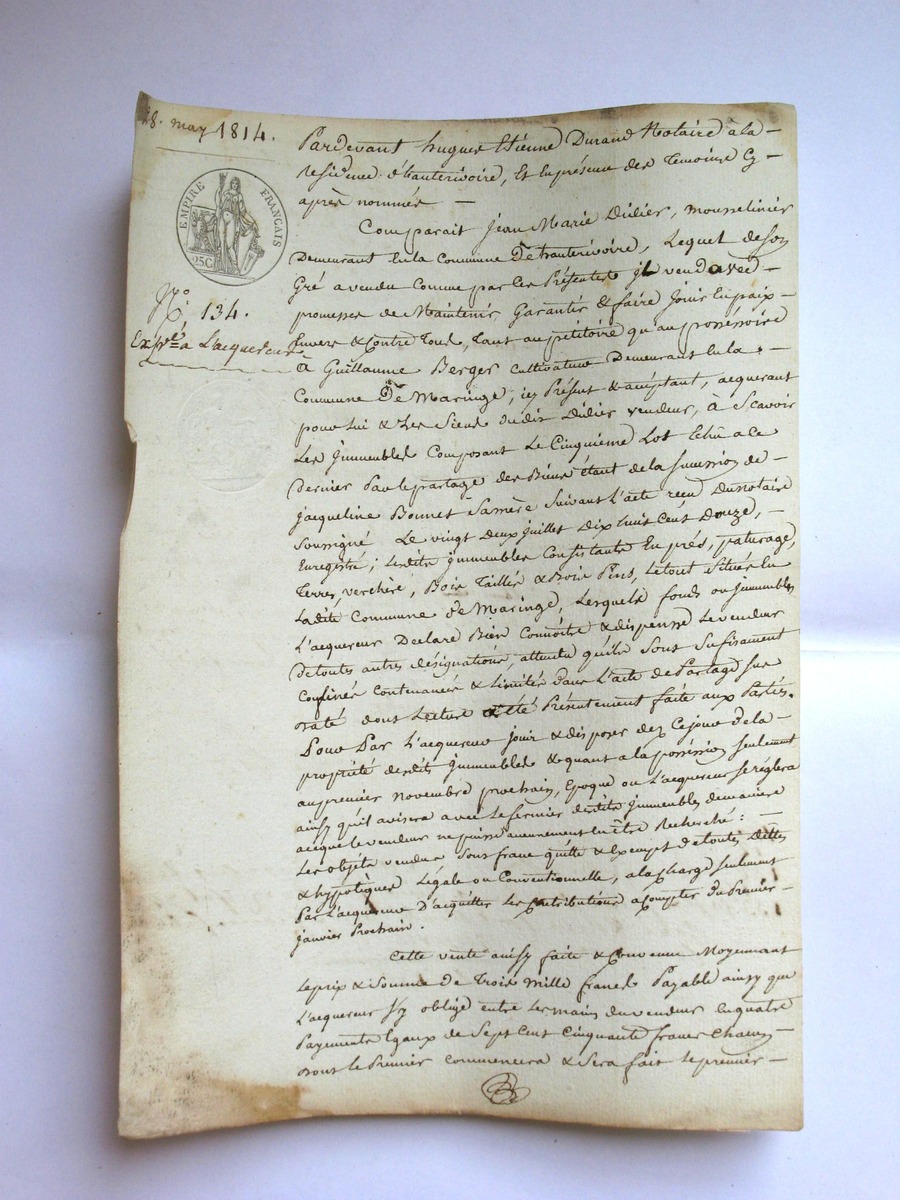 18. may 1814.
EMPIRE FRANÇAIS
25C
N.o 134.
Exp.ée a L'acquereur
Pardevant hugues Etienne Durand Notaire à la
Residence d'hauterivoire, Et En présence des Temoins Cy
après nommés
Comparait Jean Marie Didier, mousselinier
Demeurant En la Commune D'hauterivoire, Lequel de Son
Gré a vendu Comme par Ces Présentes il vend avec
promesse de Maintenir, Garantir & faire Jouir En paix
Envers & Contre Tous, Tant au pétitoire qu'au posséssoire
à Guillaume Berger Cultivateur Demeurant En la
Commune De Maringe, icy Présent & acceptant, acquerant
pour Lui & Les Siens dudit Didier vendeur, à Scavoir
Les Immeubles Composant Le Cinquieme Lot Echû a Ce
Dernier Par le partage des Biens étant de la Succession de
Jacqueline Bonnet Sa mère Suivant L'acte reçu Du Notaire
Soussigné Le vingt Deux Juillet Dix huit Cent Douze,
Enregistré; Lesdits Immeubles Consistants En prés, paturage,
Terres, verchère, Bois Taillis & Bois Pins, Le tout Situés En
Ladite Commune de Maringe, Lesquels fonds ou Immeubles
L'acquereur Declare Bien Connoître & dispense Le vendeur
De toutes autres désignations, attendu qu'ils Sont Sufisament
Confinés Contenancés & Limités Dans L'acte de Partage Sus
Daté dont Lecture a été Présentement faite aux Parties.
Pour Par L'acquereur Jouir & disposer dez Ce jour De la
propriété desdits Immeubles & quant a la posséssion Seulement
au premier Novembre prochain, Epoque ou L'acquereur Se réglera
ainsy qu'il avisera avec Le fermier desdits Immeubles de maniere
a ce que le vendeur ne puisse aucunement En être Recherché:
Les objets vendus Sont franc quitte & Exempt de toutes Dettes
& hypotèques Légale ou Conventionnelle, a la Charge Seulement
Par L'acquereur D'acquitter Les Contributions a Compter du Premier
Janvier Prochain.
Cette vente ainsy faite & Convenue Moyennant
Le prix & Somme de Trois Mille francs Payable ainsy que
L'acquereur S'y oblige entre Les mains du vendeur En quatre
Payements Egaux de Sept Cent Cinquante francs Chacun
dont le Premier Commencera & Sera fait le premier